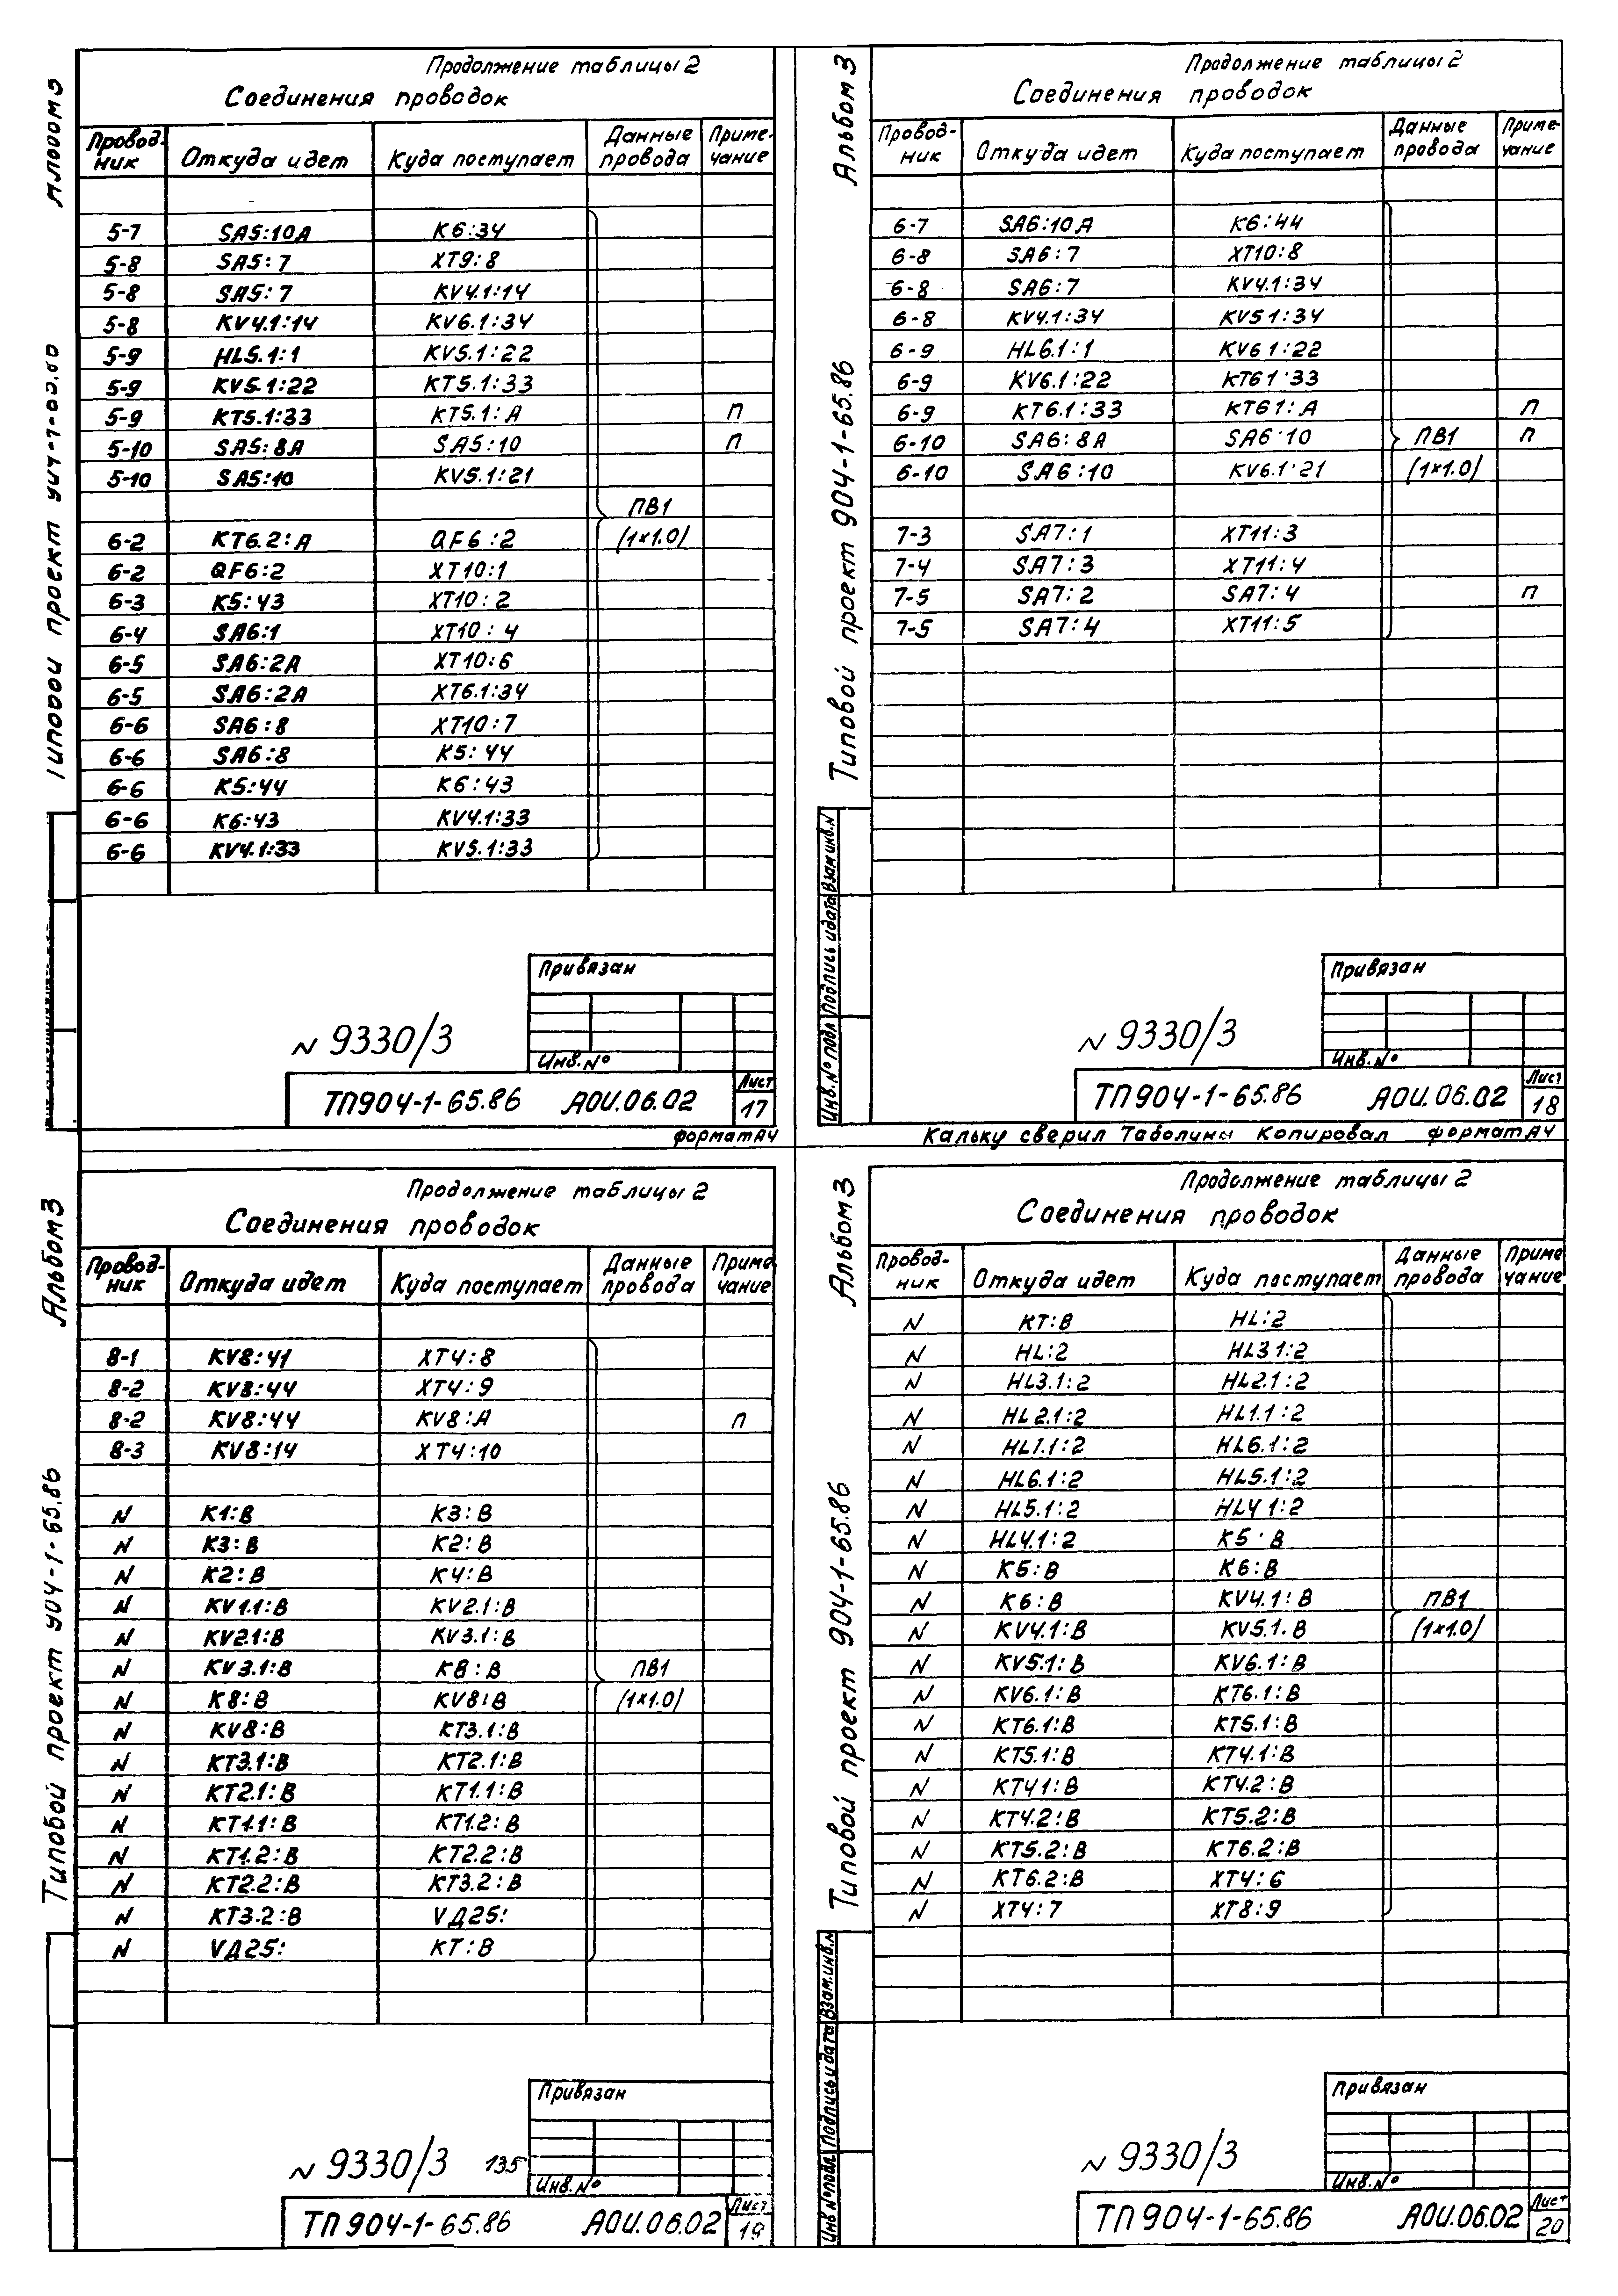 Альбом 3
Продолжение таблицы 2
Соединения проводок
Провод-ник Откуда идет Куда поступает Данные провода Приме-чание
5-7 SA5:10A К6:34
5-8 SA5:7 XT9:8
5-8 SA5:7 KV4.1:14
5-8 KV4.1:14 KV6.1:34
5-9 HL5.1:1 KV5.1:22
5-9 KV5.1:22 KT5.1:33
5-9 KT5.1:33 KT5.1:A П
5-10 SA5:8A SA5:10 П
5-10 SA5:10 KV5.1:21
ПВ1
6-2 KT6.2:A QF6:2 (1×1.0)
6-2 QF6:2 XT10:1
6-3 K5:43 XT10:2
6-4 SA6:1 XT10:4
6-5 SA6:2A XT10:6
6-5 SA6:2A XT6.1:34
6-6 SA6:8 XT10:7
6-6 SA6:8 K5:44
6-6 K5:44 K6:43
6-6 K6:43 KV4.1:33
6-6 KV4.1:33 KV5.1:33
Привязан
N 9330/3
Инв.№
ТП904-1-65.86 АОИ.06.02
Лист
17
формат А4
Альбом 3
Типовой проект 904-1-65.86
Продолжение таблицы 2
Соединения проводок
Провод-ник Откуда идет Куда поступает Данные провода Приме-чание
6-7 SA6:10A K6:44
6-8 SA6:7 XT10:8
6-8 SA6:7 KV4.1:34
6-8 KV4.1:34 KV5 1:34
6-9 HL6.1:1 KV6 1:22
6-9 KV6.1:22 KT6 1:33
6-9 KT6.1:33 KT6 1:A П
6-10 SA6:8A SA6:10 ПВ1 П
6-10 SA6:10 KV6.1:21 (1×1.0)
7-3 SA7:1 XT11:3
7-4 SA7:3 XT11:4
7-5 SA7:2 SA7:4 П
7-5 SA7:4 XT11:5
Взам инв.N
Подпись и дата
Инв.№ подл
Привязан
N 9330/3
Инв.№
ТП904-1-65.86 АОИ.06.02
Лист
18
Кальку сверил Таболина Копировал формат А4
Альбом 3
Типовой проект 904-1-65.86
Продолжение таблицы 2
Соединения проводок
Провод-ник Откуда идет Куда поступает Данные провода Приме-чание
8-1 KV8:41 XT4:8
8-2 KV8:44 XT4:9
8-2 KV8:44 KV8:A П
8-3 KV8:14 XT4:10
N K1:B K3:B
N K3:B K2:B
N K2:B K4:B
N KV1.1:B KV2.1:B
N KV2.1:B KV3.1:B
N KV3.1:B K8:B ПВ1
N K8:B KV8:B (1×1.0)
N KV8:B KT3.1:B
N KT3.1:B KT2.1:B
N KT2.1:B KT1.1:B
N KT1.1:B KT1.2:B
N KT1.2:B KT2.2:B
N KT2.2:B KT3.2:B
N KT3.2:B VД25:
N VД25: KT:B
Привязан
N 9330/3 135
Инв.№
ТП904-1-65.86 АОИ.06.02
Лист
19
Альбом 3
Типовой проект 904-1-65.86
Продолжение таблицы 2
Соединения проводок
Провод-ник Откуда идет Куда поступает Данные провода Приме-чание
N KT:B HL:2
N HL:2 HL3 1:2
N HL3.1:2 HL2.1:2
N HL2.1:2 HL1.1:2
N HL1.1:2 HL6.1:2
N HL6.1:2 HL5.1:2
N HL5.1:2 HL4 1:2
N HL4.1:2 K5:B
N K5:B K6:B
N K6:B KV4.1:B ПВ1
N KV4.1:B KV5.1.B (1×1.0)
N KV5.1:B KV6.1:B
N KV6.1:B KT6.1:B
N KT6.1:B KT5.1:B
N KT5.1:B KT4.1:B
N KT4 1:B KT4.2:B
N KT4.2:B KT5.2:B
N KT5.2:B KT6.2:B
N KT6.2:B XT4:6
N XT4:7 XT8:9
Взам.инв.N
Подпись и дата
Инв №подл.
Привязан
N 9330/3
Инв.№
ТП904-1-65.86 АОИ.06.02
Лист
20